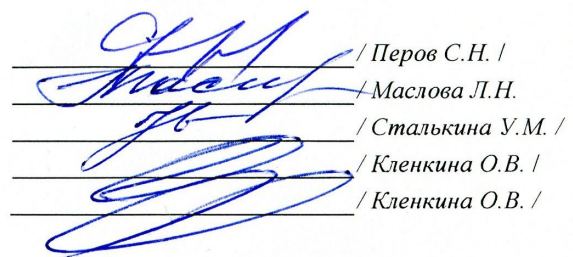 / Перов С.Н. /
/ Маслова Л.Н.
/ Сталькина У.М. /
/ Кленкина О.В. /
/ Кленкина О.В. /